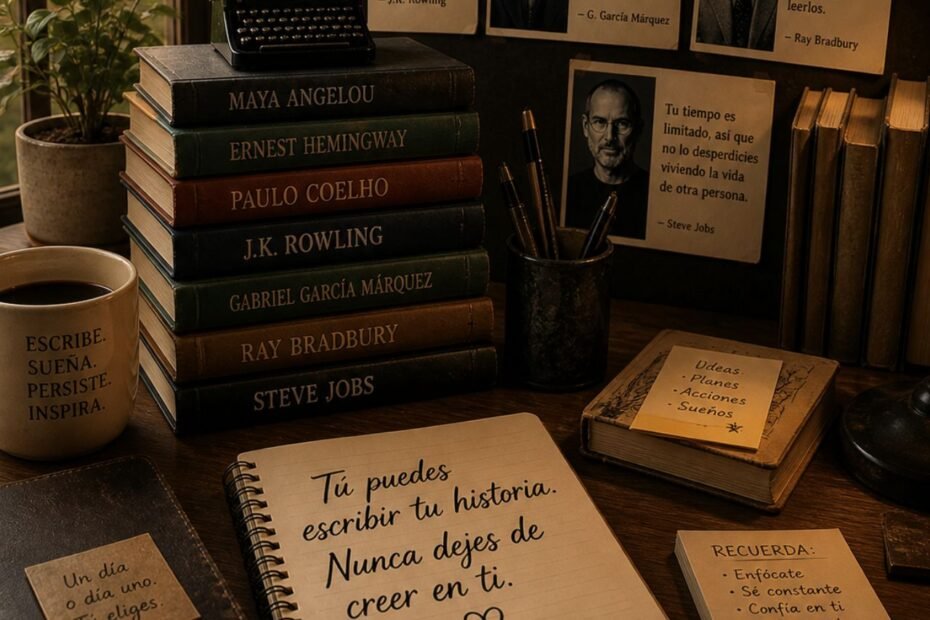 – J.K. Rowling
– G. García Márquez
leerlos.
– Ray Bradbury
Tu tiempo es
limitado, así que
no lo desperdicies
viviendo la vida
de otra persona.
– Steve Jobs
MAYA ANGELOU
ERNEST HEMINGWAY
PAULO COELHO
J.K. ROWLING
GABRIEL GARCÍA MÁRQUEZ
RAY BRADBURY
STEVE JOBS
ESCRIBE.
SUEÑA.
PERSISTE.
INSPIRA.
Udeas
· Planes
· Acciones
· Sueños
Tú puedes
escribir tu historia.
Nunca dejes de
creer en ti.
Un día
o día uno.
Tú eliges.
RECUERDA:
· Enfócate
· Sé constante
· Confía en ti